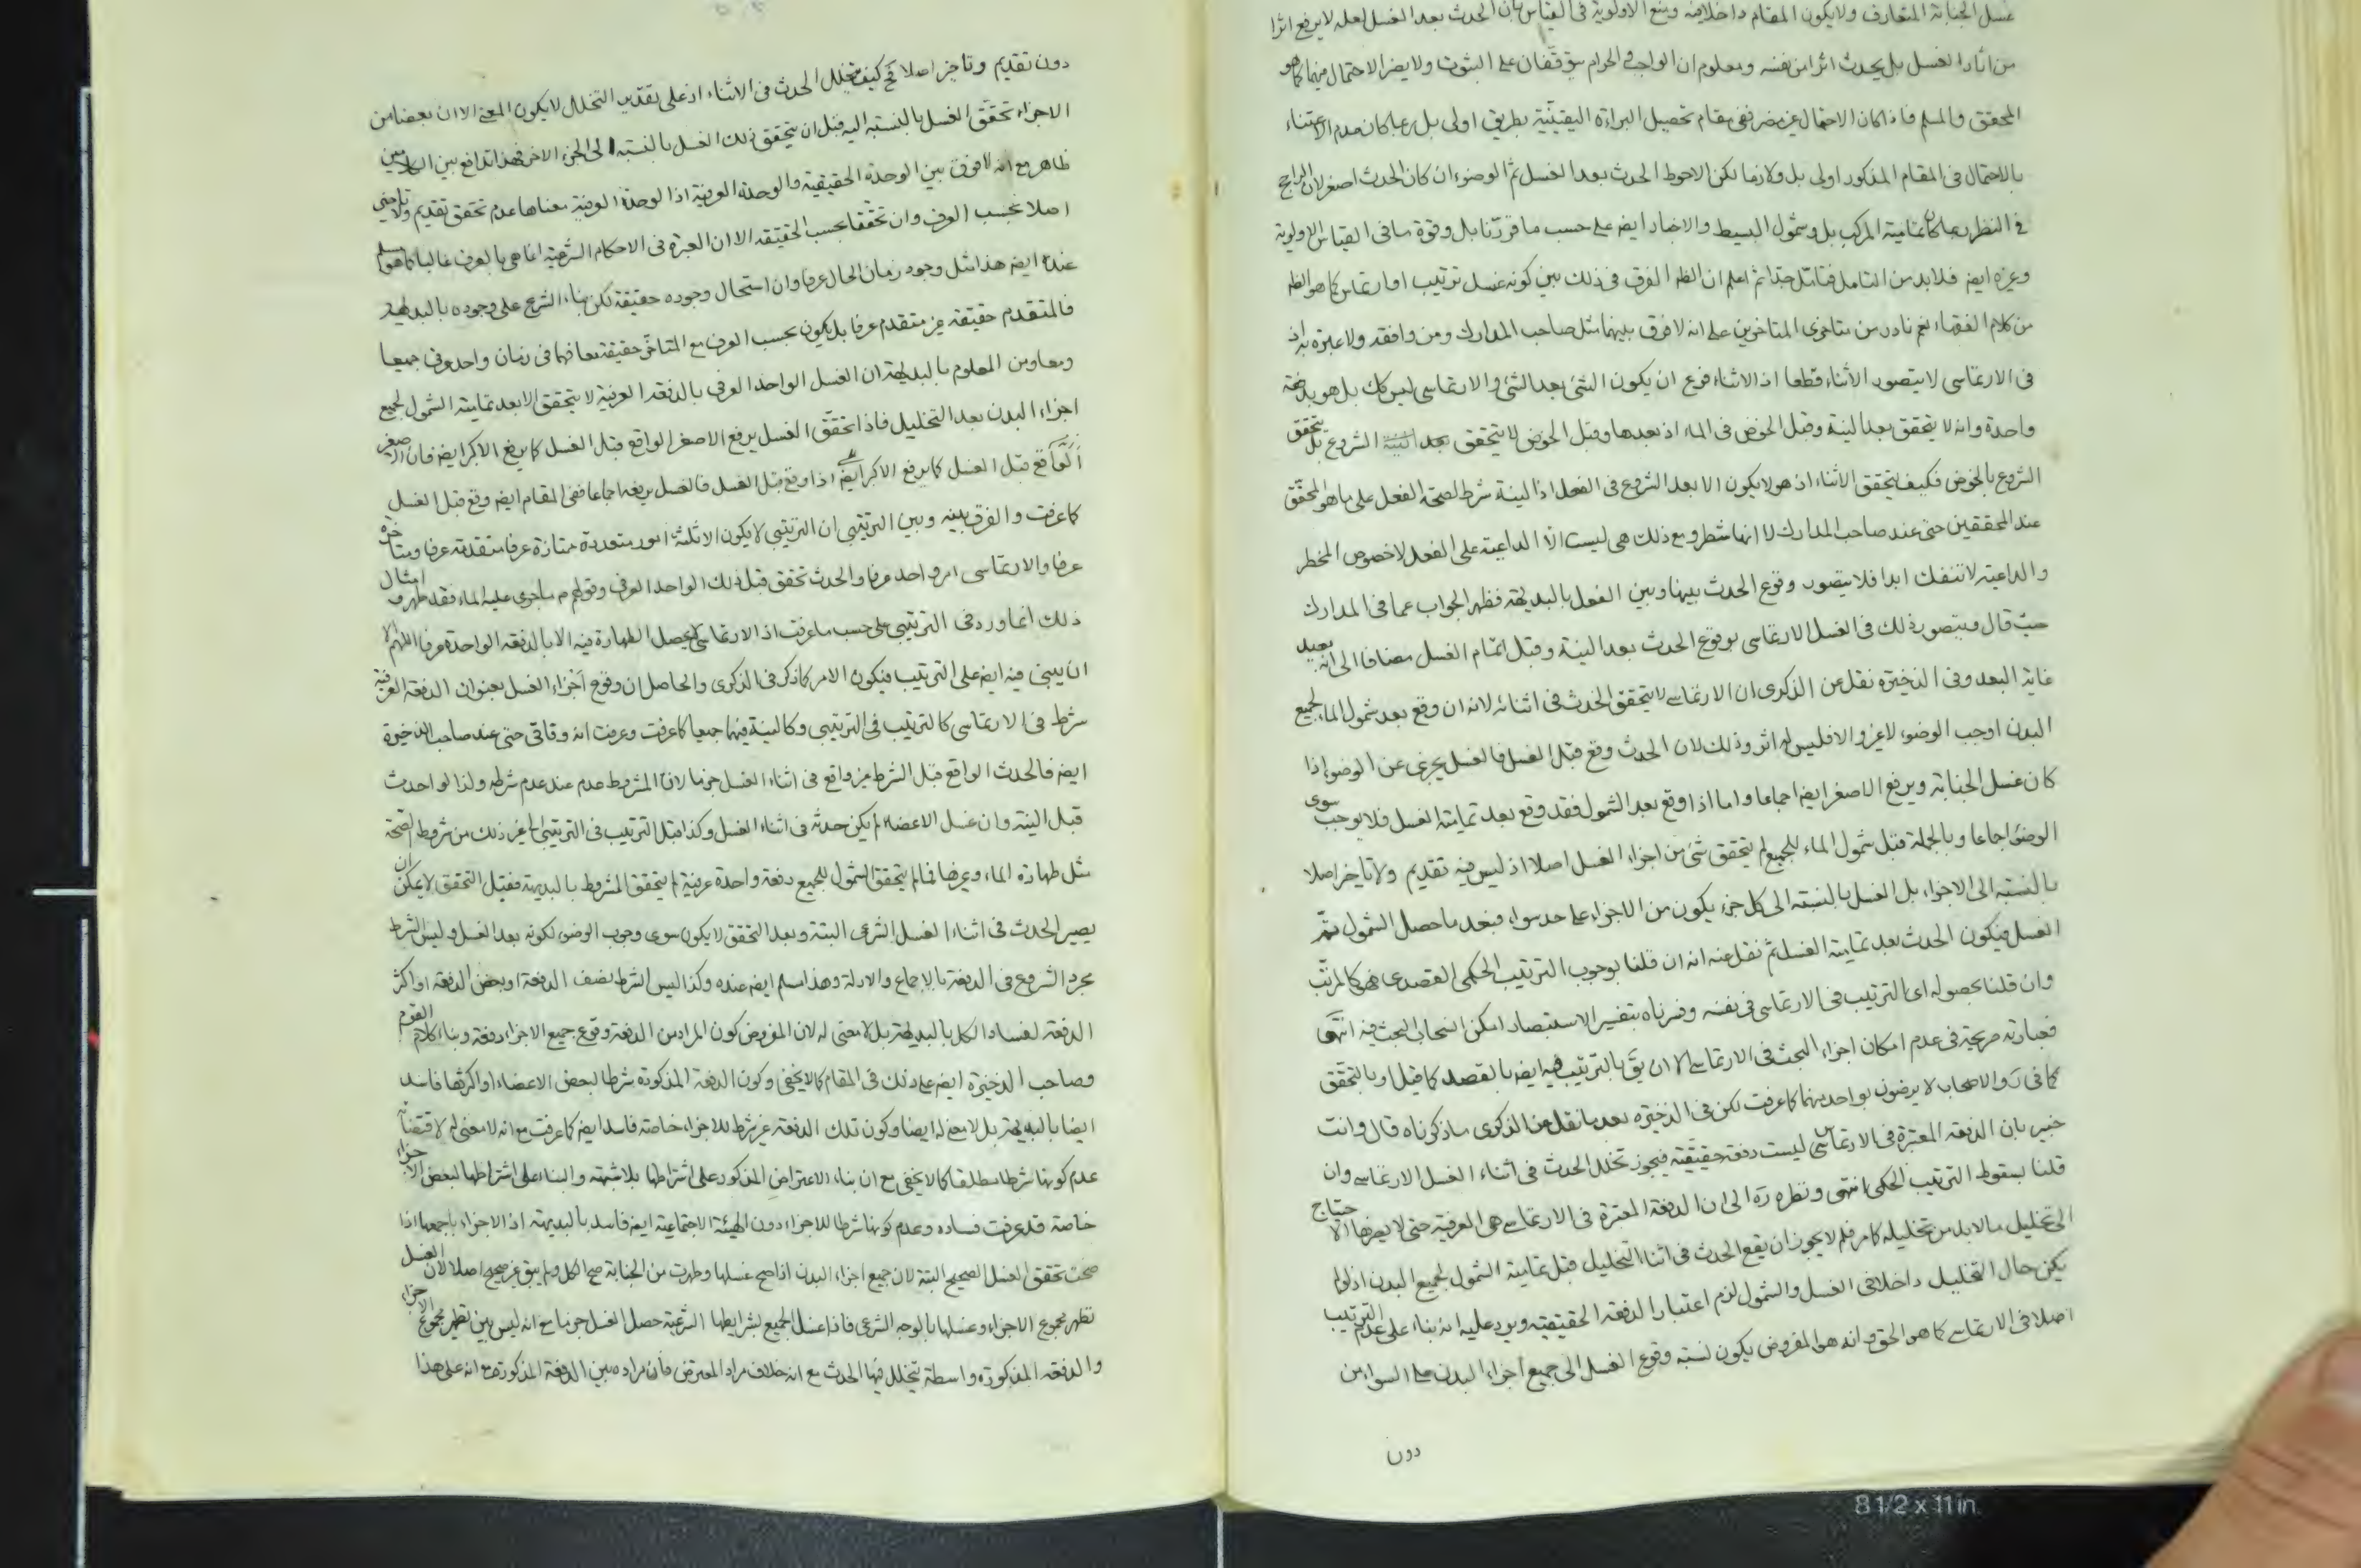 غسل الجنابة المتعارف ولا يكون المقام داخلا فيه ومنع الاولوية فى القياس بان الحدث بعد الغسل لعله لا يرفع اثرا
من اثار الغسل بل يحدث اثرا من نفسه ومعلوم ان الواجب والحرام يتوقفان على الثبوت ولا يضر الاحتمال فيهما كما هو
المحقق والمسلم فاذا كان الاحتمال غير مضر ففى مقام تحصيل البراءة اليقينية بطريق اولى بل ربما كان عدم الاعتناء
بالاحتمال فى المقام المذكور اولى بل ولازما لكن الاحوط الحدث بعد الغسل ثم الوضوء ان كان الحدث اصغر لان الراجح
فى النظر تمامية المركب بل وشمول البسيط والاخبار ايضا على حسب ما قررنا بل وقوة ما فى القياس الاولوية
وغيره ايضا فلا بد من التامل فتامل جدا ثم اعلم ان الظ الفرق فى ذلك بين كونه غسل ترتيب او ارتماس كما هو الظ
من كلام الفقهاء نعم نادر من متاخرى المتاخرين على انه لا فرق بينهما مثل صاحب المدارك ومن وافقه ولا عبرة به اذ
فى الارتماسى لا يتصور الأثناء قطعا اذ الاثناء فرع ان يكون الشئ بعد الشئ والارتماسى ليس كك بل هو دفعة
واحدة وانه لا يتحقق بعد النية وقبل الخوض فى الماء اذ بعدها وقبل الخوض لا يتحقق بعد الشروع بل يتحقق
الشروع بالخوض فكيف يتحقق الأثناء اذ هو لا يكون الا بعد الشروع فى الفعل اذ النية شرط لصحة الفعل على ما هو المحقق
عند المحققين حتى عند صاحب المدارك لا انها شطر ومع ذلك هى ليست الا الداعية على الفعل لا خصوص المخطر
والداعية لا تنفك ابدا فلا يتصور وقوع الحدث بينها وبين الفعل بالبديهة فظهر الجواب عما فى المدارك
حيث قال ويتصور ذلك فى الغسل الارتماسى بوقوع الحدث بعد النية وقبل اتمام الغسل مضافا الى انه بعيد
غاية البعد وفى الذخيرة نقل عن الذكرى ان الارتماسى لا يتحقق الحدث فى اثنائه لانه ان وقع بعد شمول الماء لجميع
البدن اوجب الوضوء لا غير والا فليس له اثر وذلك لان الحدث وقع قبل الغسل فالغسل يجزى عن الوضوء اذا
كان غسل الجنابة ويرفع الاصغر ايضا اجماعا واما اذا وقع بعد الشمول فقد وقع بعد تمامية الغسل فلا يوجب سوى
الوضوء اجماعا وبالجملة قبل شمول الماء للجميع لم يتحقق شئ من اجزاء الغسل اصلا اذ ليس فيه تقديم ولا تاخير اصلا
بالنسبة الى الاجزاء بل الغسل بالنسبة الى كل جزء يكون من الاجزاء على حد سواء فبعد ما حصل الشمول تم
الغسل فيكون الحدث بعد تمامية الغسل ثم نقل عنه انه ان قلنا بوجوب الترتيب الحكمى القصدى فهى كالمرتب
وان قلنا بحصوله اى الترتيب فى الارتماسى فى نفسه وفسرناه بتفسير الاستبصار امكن انسحاب البحث فيه انتهى
فعبارته صريحة فى عدم امكان اجراء البحث فى الارتماسى الا ان يق بالترتيب فيه ايضا بالقصد كما قيل او بالتحقق
كما فى والاصحاب لا يرضون بواحد منهما كما عرفت لكن فى الذخيرة بعد ما نقل عن الذكرى ما ذكرناه قال وانت
خبير بان الدفعة المعتبرة فى الارتماسى ليست دفعة حقيقية فيجوز تخلل الحدث فى اثناء الغسل الارتماسى وان
قلنا بسقوط الترتيب الحكمى انتهى ونظره ره الى ان الدفعة المعتبرة فى الارتماسى هى العرفية حتى لا يضرها الاحتياج
الى تخليل ما لا بد من تخليله كما مر فلم لا يجوز ان يقع الحدث فى اثناء التخليل قبل تمامية الشمول لجميع البدن اذ لو لم
يكن حال التخليل داخلا فى الغسل والشمول لزم اعتبار الدفعة الحقيقية ويرد عليه انه بناء على عدم الترتيب
اصلا فى الارتماسى كما هو الحق وانه هو المفروض يكون نسبة وقوع الغسل الى جميع اجزاء البدن على السواء من
دون
دون تقديم وتاخير اصلا فح كيف يتخلل الحدث فى الاثناء اذ على تقدير التخلل لا يكون المعنى الا ان بعضا من
الاجزاء تحقق الغسل بالنسبة اليه قبل ان يتحقق ذلك الغسل بالنسبة الى الجزء الاخر فهذا تدافع بين الكلامين
ظاهر مع انه لا فرق بين الوحدة الحقيقية والوحدة العرفية اذ الوحدة العرفية معناها عدم تحقق تقديم ولا تاخير
اصلا بحسب العرف وان تحققا بحسب الحقيقة الا ان العبرة فى الاحكام الشرعية انما هى بالعرف غالبا كما هو مسلم
عنده ايضا هذا مثل وجود زمان الحال عرفا وان استحال وجوده حقيقة لكن بناء الشرع على وجوده بالبديهة
فالمتقدم حقيقة غير متقدم عرفا بل يكون بحسب العرف مع المتاخر حقيقة معا فهما فى زمان واحد عرفى جميعا
ومعا ومن المعلوم بالبديهة ان الغسل الواحد العرفى بالدفعة العرفية لا يتحقق الا بعد تمامية الشمول لجميع
اجزاء البدن بعد التخليل فاذا تحقق الغسل يرفع الاصغر الواقع قبل الغسل كما يرفع الاكبر ايضا فان الاصغر
الواقع قبل الغسل كما يرفع الاكبر ايضا اذا وقع قبل الغسل فالغسل يرفعه اجماعا ففى المقام ايضا وقع قبل الغسل
كما عرفت والفرق بينه وبين الترتيبى ان الترتيبى لا يكون الا ثلثة امور متعددة ممتازة عرفا متقدمة عرفا ومتاخرة
عرفا والارتماسى امر واحد عرفا والحدث تحقق قبل ذلك الواحد العرفى وقولهم ع ما جرى عليه الماء فقد طهر وامثال
ذلك انما ورد فى الترتيبى على حسب ما عرفت اذ الارتماسى لا يحصل الطهارة فيه الا بالدفعة الواحدة عرفا اللهم الا
ان يبنى فيه ايضا على الترتيب فيكون الامر كما ذكر فى الذكرى والحاصل ان وقوع اجزاء الغسل بعنوان الدفعة العرفية
شرط فى الارتماسى كالترتيب فى الترتيبى وكالنية فيهما جميعا كما عرفت وعرفت انه وفاقى حتى عند صاحب الذخيرة
ايضا فالحدث الواقع قبل الشرط غير واقع فى اثناء الغسل جزما لان المشروط عدم عند عدم شرطه ولذا لو احدث
قبل النية وان غسل الاعضاء لم يكن حدثه فى اثناء الغسل وكذا قبل الترتيب فى الترتيبى الى غير ذلك من شروط الصحة
مثل طهارة الماء وغيرها فما لم يتحقق الشمول للجميع دفعة واحدة عرفية لم يتحقق المشروط بالبديهة فقبل التحقق لا يمكن ان
يصير الحدث فى اثناء الغسل الشرعى البتة وبعد التحقق لا يكون سوى وجوب الوضوء لكونه بعد الغسل وليس الشرط
مجرد الشروع فى الدفعة بالاجماع والادلة وهذا مسلم ايضا عنده وكذا ليس الشرط نصف الدفعة او بعض الدفعة او اكثر
الدفعة لفساد الكل بالبديهة بل لا معنى له لان المفروض كون المراد من الدفعة وقوع جميع الاجزاء دفعة وبناء كلام القوم
وصاحب الذخيرة ايضا على ذلك فى المقام كما لا يخفى وكون الدفعة المذكورة شرطا لبعض الاعضاء او اكثرها فاسد
ايضا بالبديهة بل لا معنى له ايضا وكون تلك الدفعة غير شرط للاجزاء خاصة فاسد ايضا كما عرفت مع انه لا معنى له لاقتضائه
عدم كونها شرطا مطلقا كما لا يخفى مع ان بناء الاعتراض المذكور على اشتراطها بلا شبهة والبناء على اشتراطها لبعض الاجزاء
خاصة قد عرفت فساده وعدم كونها شرطا للاجزاء دون الهيئة الاجتماعية ايضا فاسد بالبديهة اذ الاجزاء باجمعها اذا
صحت تحقق الغسل الصحيح البتة لان جميع اجزاء البدن اذا صح غسلها وطهرت من الجنابة صح الكل ولم يبق غير صحيح اصلا لان الغسل
تطهر مجموع الاجزاء وغسلها بالوجه الشرعى فاذا غسل الجميع بشرايطها الشرعية حصل الغسل جزما مع انه ليس بين تطهر مجموع الاجزاء
والدفعة المذكورة واسطة يتخلل فيها الحدث مع انه خلاف مراد المعترض فان مراده بين الدفعة المذكورة مع انه على هذا
8 1/2 x 11 in.